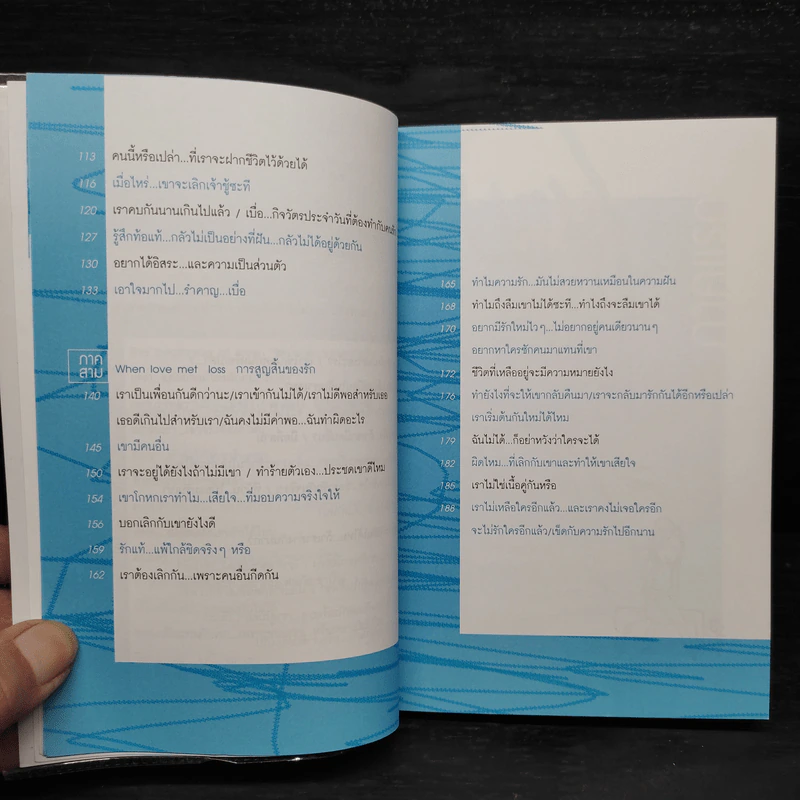 113 คนนี้หรือเปล่า...ที่เราจะฝากชีวิตไว้ด้วยได้
116 เมื่อไหร่...เขาจะเลิกเจ้าชู้ซะที
120 เราคบกันนานเกินไปแล้ว / เบื่อ...กิจวัตรประจำวันที่ต้องทำกับคนรัก
127 รู้สึกท้อแท้...กลัวไม่เป็นอย่างที่ฝัน...กลัวไม่ได้อยู่ด้วยกัน
130 อยากได้อิสระ...และความเป็นส่วนตัว
133 เอาใจมากไป...รำคาญ...เบื่อ
ภาค
สาม
When love met loss การสูญสิ้นของรัก
140 เราเป็นเพื่อนกันดีกว่านะ/เราเข้ากันไม่ได้/เราไม่ดีพอสำหรับเธอ
เธอดีเกินไปสำหรับเรา/ฉันคงไม่มีค่าพอ...ฉันทำผิดอะไร
145 เขามีคนอื่น
150 เราจะอยู่ได้ยังไงถ้าไม่มีเขา / ทำร้ายตัวเอง...ประชดเขาดีไหม
154 เขาโกหกเราทำไม...เสียใจ...ที่มอบความจริงใจให้
156 บอกเลิกกับเขายังไงดี
159 รักแท้...แพ้ใกล้ชิดจริงๆ หรือ
162 เราต้องเลิกกัน...เพราะคนอื่นกีดกัน
165 ทำไมความรัก...มันไม่สวยหวานเหมือนในความฝัน
168 ทำไมถึงลืมเขาไม่ได้ซะที...ทำไงถึงจะลืมเขาได้
170 อยากมีรักใหม่ไวๆ...ไม่อยากอยู่คนเดียวนานๆ
อยากหาใครซักคนมาแทนที่เขา
172 ชีวิตที่เหลืออยู่จะมีความหมายยังไง
176 ทำยังไงที่จะให้เขากลับคืนมา/เราจะกลับมารักกันได้อีกหรือเปล่า
เราเริ่มต้นกันใหม่ได้ไหม
179 ฉันไม่ได้...ก็อย่าหวังว่าใครจะได้
182 ผิดไหม...ที่เลิกกับเขาและทำให้เขาเสียใจ
185 เราไม่ใช่เนื้อคู่กันหรือ
188 เราไม่เหลือใครอีกแล้ว...และเราคงไม่เจอใครอีก
จะไม่รักใครอีกแล้ว/เข็ดกับความรักไปอีกนาน